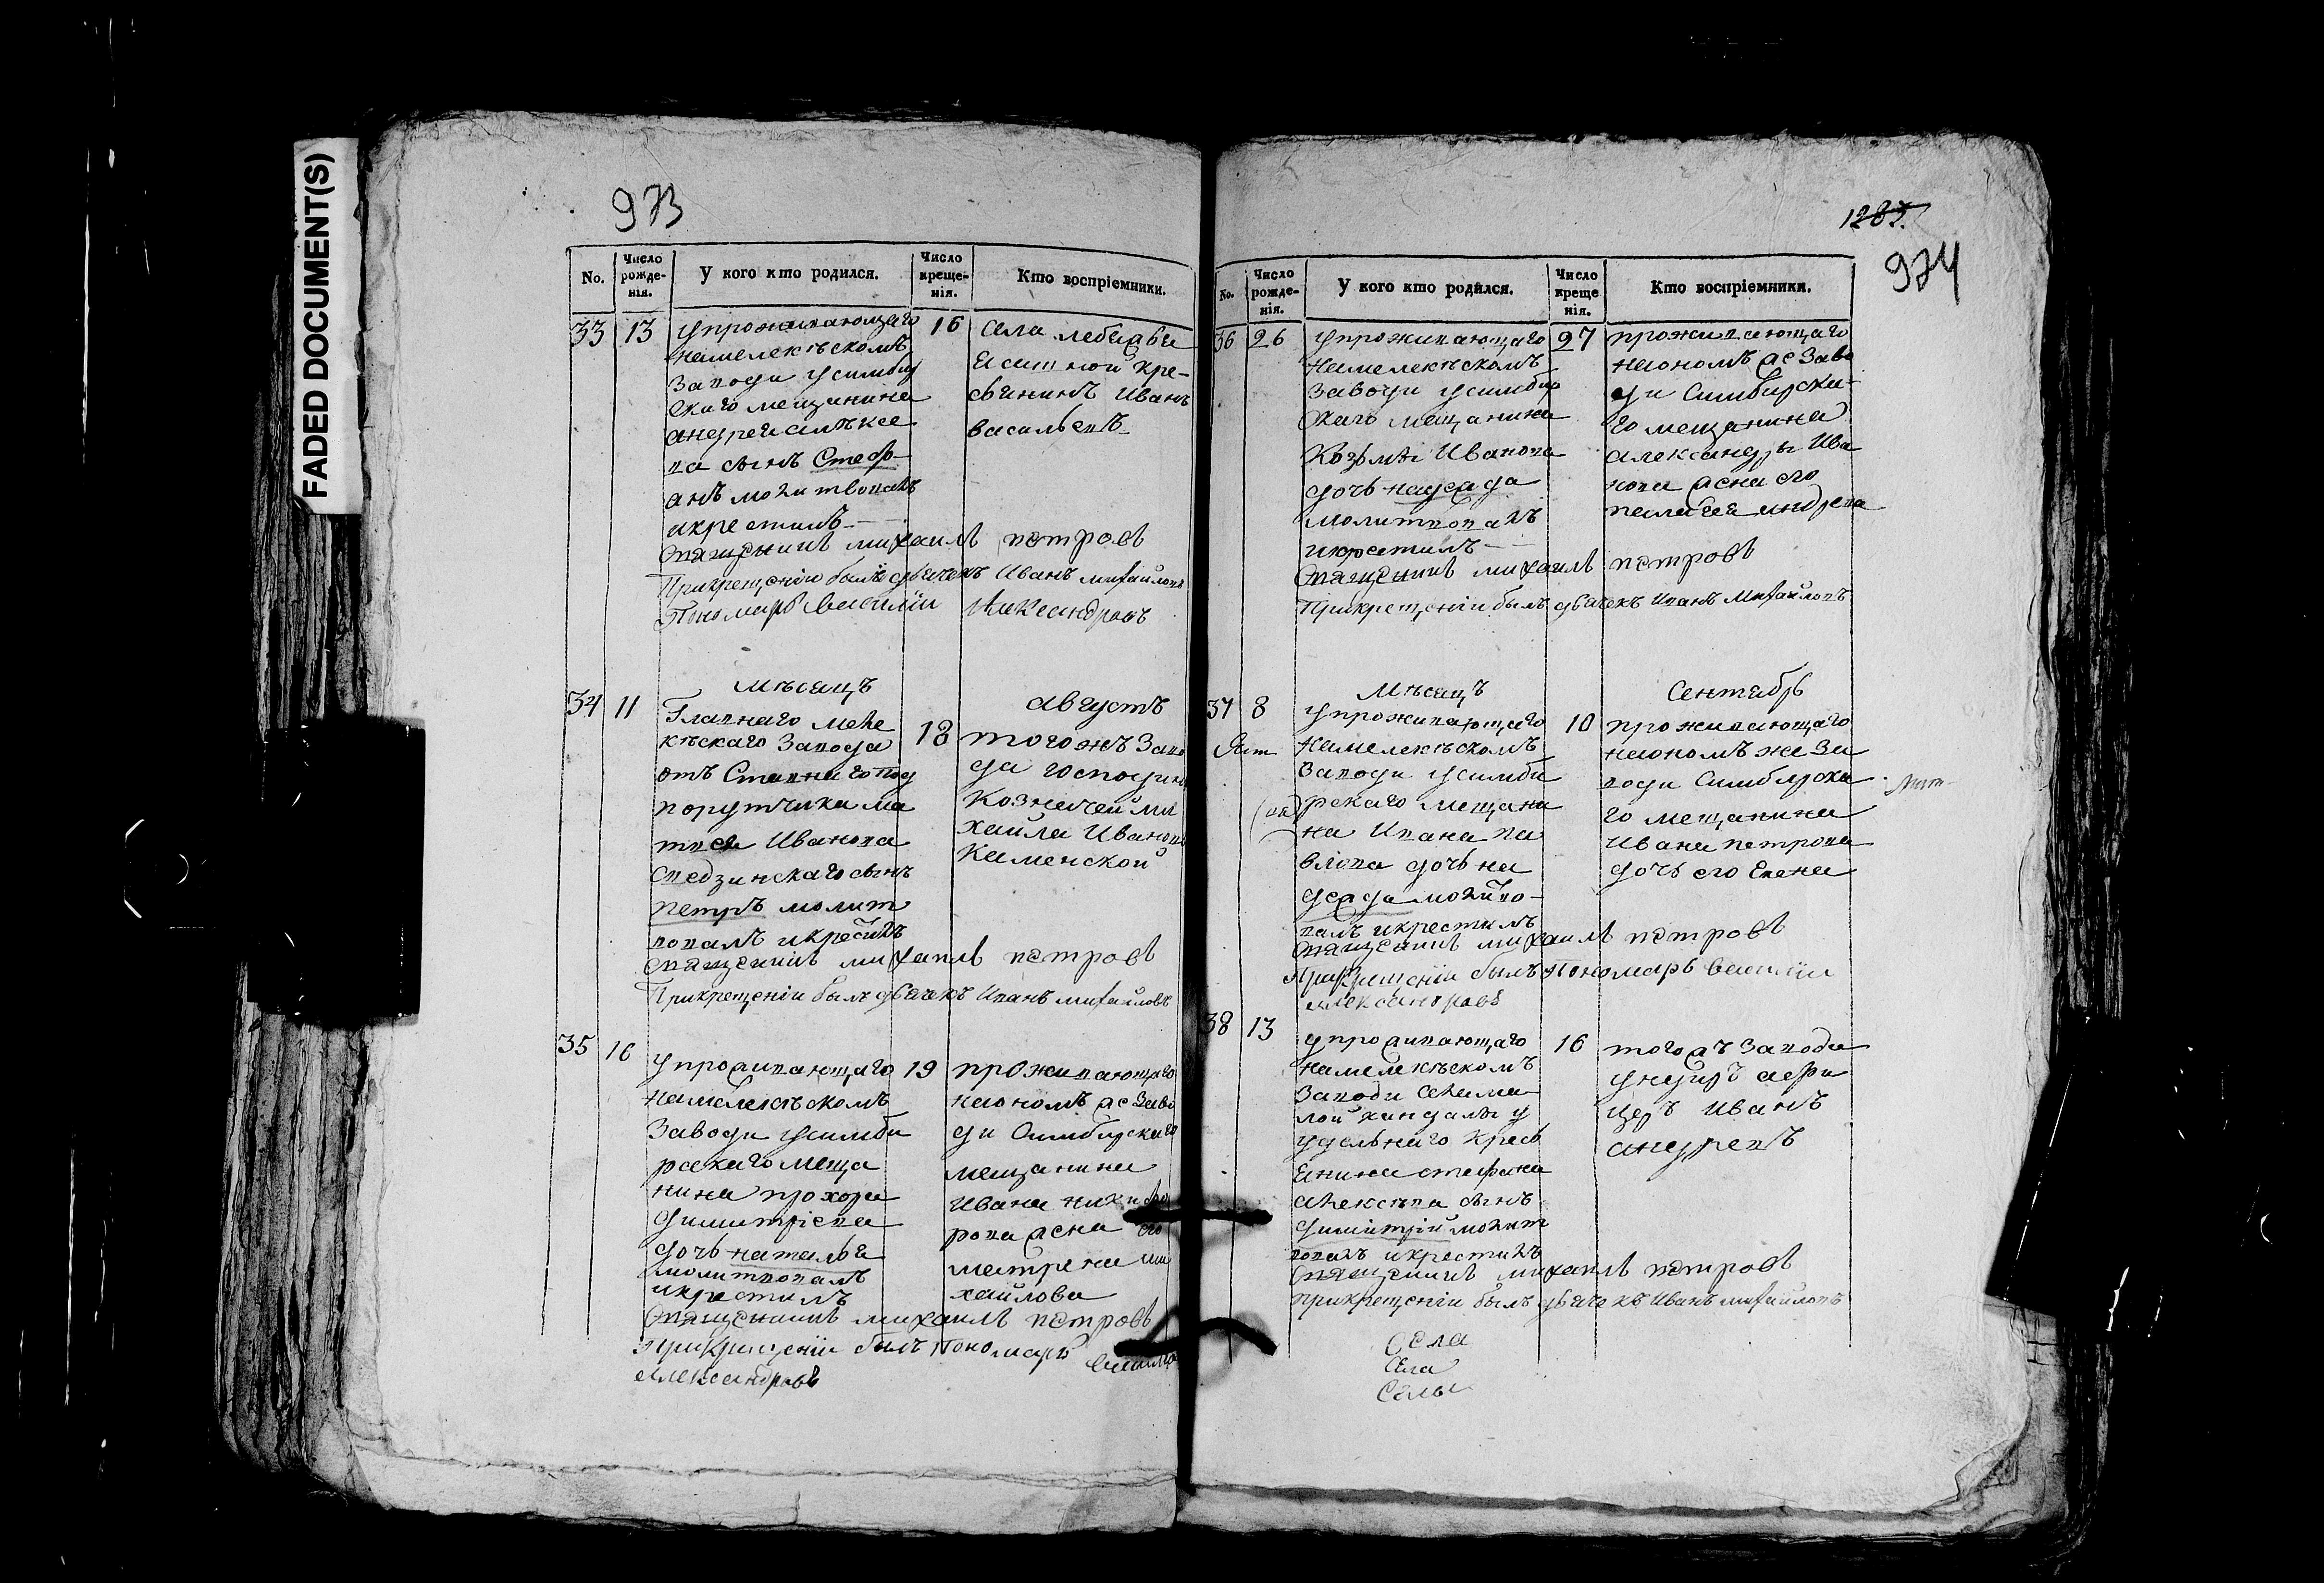 FADED DOCUMENT(S)
973
No.
Число рожде-нія.
У кого кто родился.
Число креще-нія.
Кто воспріемники.
33 13
упроживающаго
намелекѣскомъ
Заводи усимбир
скаго мещанина
андрея алѣксе
ва сынъ Стеф-
анъ молитвовалъ
икрестилъ
16
села лебежьи
ясашной кре-
стьянинъ Иванъ
васильевъ
священникъ михаилъ петровъ
Прикрещеніи былъ дьячекъ Иванъ михайловъ
Пономарь Василіи Александровъ
Мѣсяцъ Августъ
34 11
Главнаго меле
кѣскаго Завода
отъ Ставнаго под
порутчика ма
твея Иванова
сведзинскаго сынъ
петръ молит
вовалъ икрестилъ
18
тогожъ Заво
да господинъ
Кознячей ми
хайла Ивановъ
Каменской
священникъ михаилъ петровъ
Прикрещеніи былъ дьячекъ Иванъ михайловъ
35 16
упроживающаго
намелекѣскомъ
Заводи усимби
рскаго меща
нина прохора
димитріева
дочь наталья
молитвовалъ
икрестилъ
19
проживающаго
наономъ же Заво
ди Симбирскаго
мещанина
Ивана никифо
рова жена его
матрена ми
хайлова
священникъ михаилъ петровъ
Прикрещеніи былъ Пономарь Василіи
Александровъ
1287.
974
No.
Число рожде-нія.
У кого кто родился.
Число креще нія.
Кто воспріемники.
36 26
упроживающаго
намелекѣскомъ
Заводи усимбир
скаго мещанина
Козьмы Иванова
дочь надежда
молитвовалъ
икрестилъ
27
проживающаго
наономъ же Заво
ди Симбирска-
го мещанина
александры Ива
нова жена его
пелагея андрева
священникъ михаилъ петровъ
Прикрещеніи былъ дьячекъ Иванъ Михайловъ
Мѣсяцъ Сентябрь
37 8
упроживающаго
намелекѣскомъ
Заводи усимби
рскаго мещани
на Ивана па
влова дочь на
дежда молитво-
валъ икрестилъ
10
проживающаго
наономъ же За
води Симбирска
го мещанина
Ивана петрова
дочь его Елена
священникъ михаилъ петровъ
Прикрещеніи былъ Пономарь Василіи
Александровъ
38 13
упроживающаго
намелекѣскомъ
Заводи села ма
лой хандалы у
удельнаго крест
янина стефана
алексѣва сынъ
димитрій молит
вовалъ икрестилъ
16
тогожъ Завода
ундиръ афи
церъ Иванъ
андревъ
священникъ михаилъ петровъ
прикрещеніи былъ дьячекъ Иванъ михайловъ
Села
Села
Селы